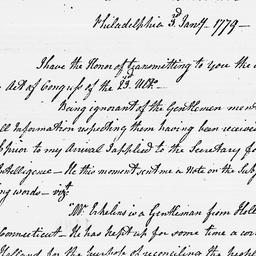 Philadelphia 3d. Jany. 1779 —
I have the Honor of transmitting to you the
Act of Congress of the 23d. Ulto. —
Being ignorant of the Gentlemen men
Information respecting them having been receive
prior to my Arrival I applied to the Secretary fo
Intelligence — He this moment sent me a Note on the Sub
ing words — vizt.
"Mr. Erkelens is a Gentleman from Holl
Connecticut — He has kept up for some time a co
Holland for the purpose of reconciling the people